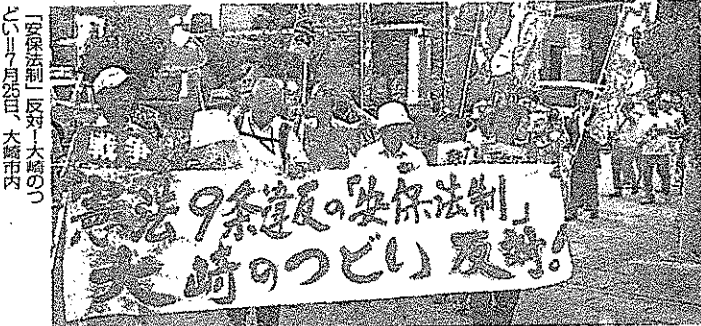 「安保法制」反対！大崎のつ
どい＝7月25日、大崎市内
憲法9条違反の「安保法制」
大崎のつどい 反対！